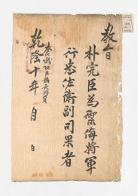 敎旨
朴完臣爲禦侮將軍
行忠佐衛副司果者
乾隆十年 月 日